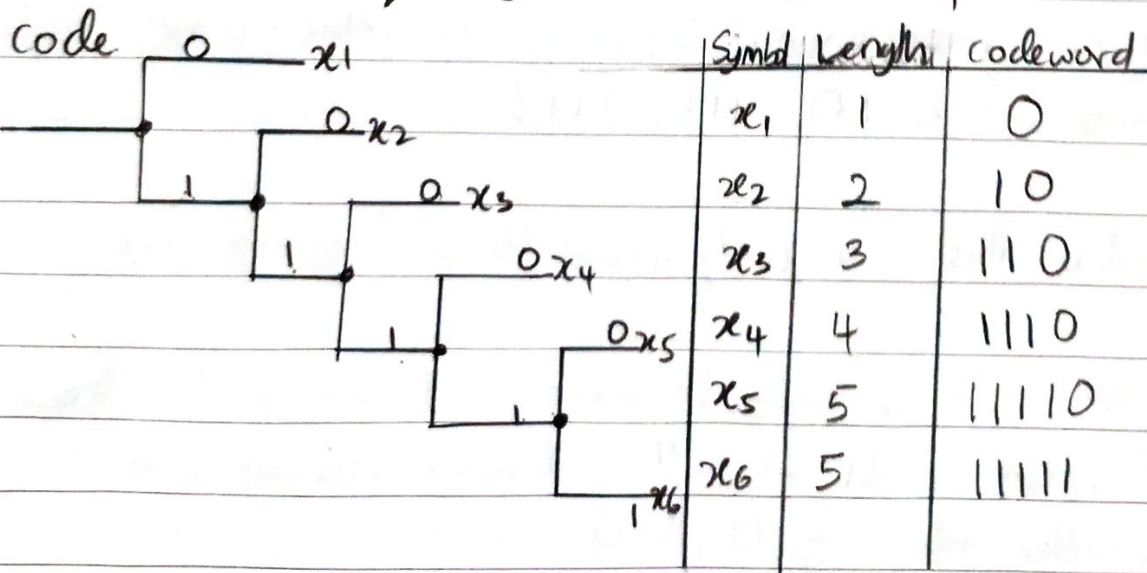 code
0 x1
0 x2
1
0 x3
1
0 x4
1
0 x5
1
1 x6
Symbol Length codeword
x1 1 0
x2 2 10
x3 3 110
x4 4 1110
x5 5 11110
x6 5 11111